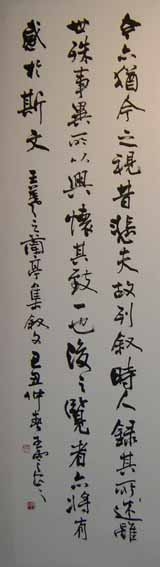 今亦猶今之視昔悲夫故列叙時人錄其所述雖
世殊事異所以興懷其致一也後之覽者亦將有
感於斯文 王羲之蘭亭集叙文己丑仲春